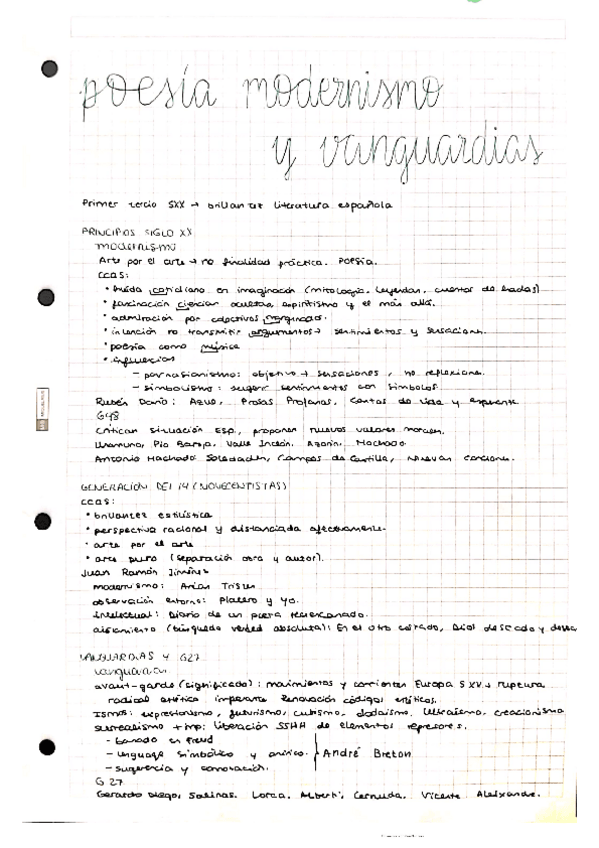 poesía modernismo
y vanguardias
Primer tercio SXX → brillantez literatura española
PRINCIPIOS SIGLO XX
modernismo
Arte por el arte → no finalidad práctica. Poesía.
CCAS:
• huida cotidiano en imaginación (mitología, leyendas, cuentos de hadas)
• fascinación ciencias ocultas, espiritismo y el más allá.
• admiración por colectivos marginados.
• intención no transmitir argumentos → sentimientos y sensaciones.
• poesía como música
• influencias
- parnasianismo: objetivo → sensaciones, no reflexiones.
- simbolismo: sugerir sentimientos con símbolos
Rubén Darío: Azul, Prosas Profanas, Cantos de vida y esperanza
G48
Critican situación Esp, proponen nuevos valores morales.
Unamuno, Pío Baroja, Valle Inclán, Azorín, Machado
Antonio Machado Soledades, Campos de Castilla, Nuevas canciones.
GENERACIÓN DEL 14 (NOVECENTISTAS)
CCAS:
• brillantez estilística
• perspectiva racional y distanciada afectivamente.
• arte por el arte
• arte puro (separación obra y autor).
Juan Ramón Jiménez
modernismo: Arias Tristes
observación entorno: Platero y yo.
intelectual: Diario de un poeta reciencasado.
aislamiento (búsqueda verdad absoluta): En el otro costado, Dios deseado y desea
VANGUARDIAS Y G27
vanguardias
avant-garde (significado): movimientos y corrientes Europa SXX → ruptura
radical estética imperante. Renovación códigos artísticos.
Ismos: expresionismo, futurismo, cubismo, dadaísmo, ultraísmo, creacionismo
surrealismo + imp: liberación SSHH de elementos represores.
- basado en Freud
- lenguaje simbólico y onírico. André Breton
- sugerencia y connotación.
G27
Gerardo Diego, Salinas, Lorca, Alberti, Cernuda, Vicente Aleixandre.